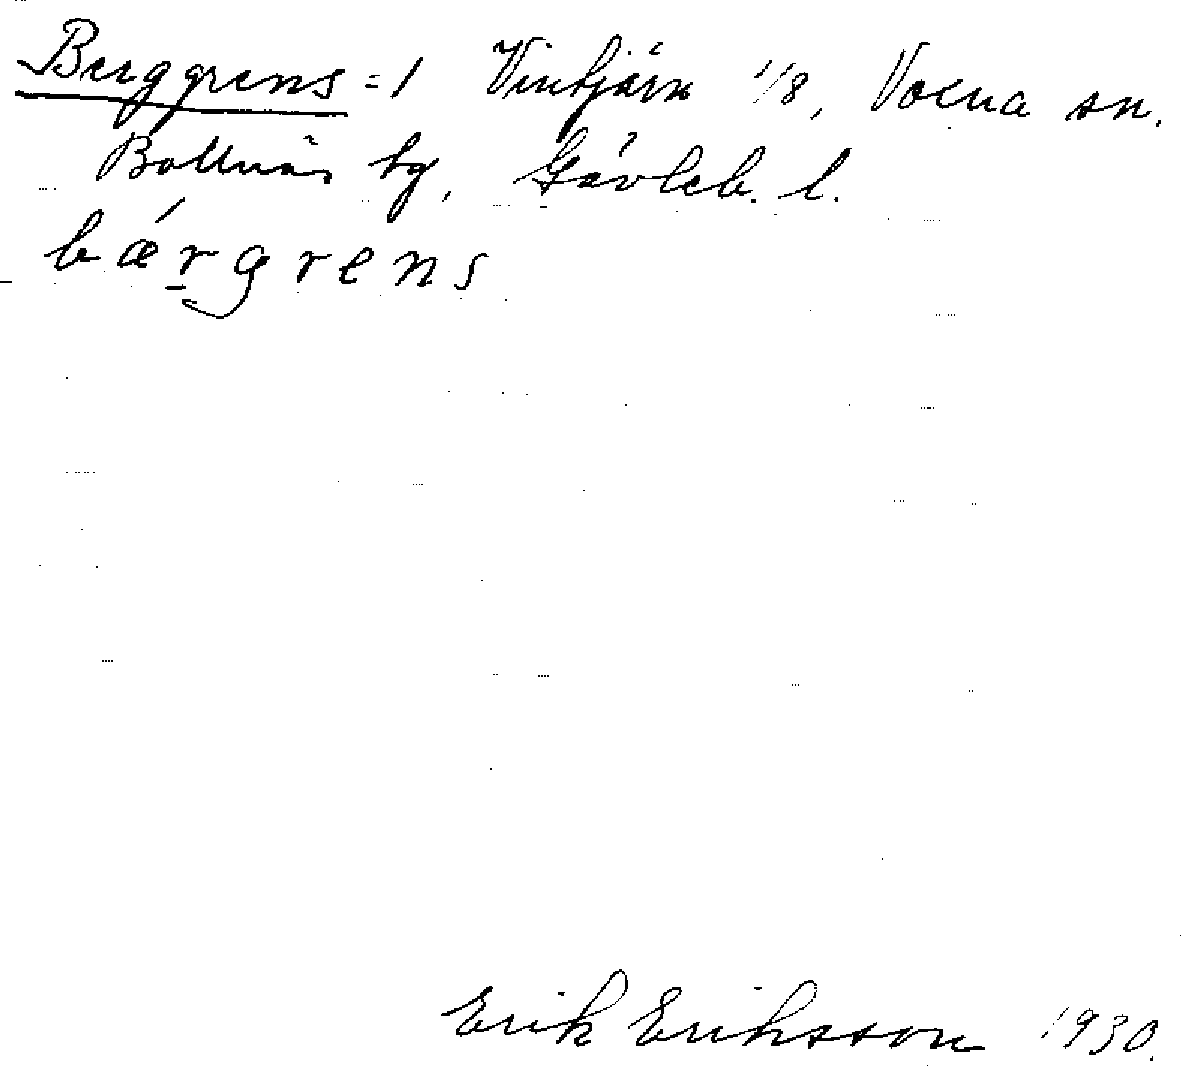 Berggrens = 1 Vintjärn 1/8, Voxna sn.
Bollnäs tg, Gävleb. l.
bǽrgrens
Erik Eriksson 1930.